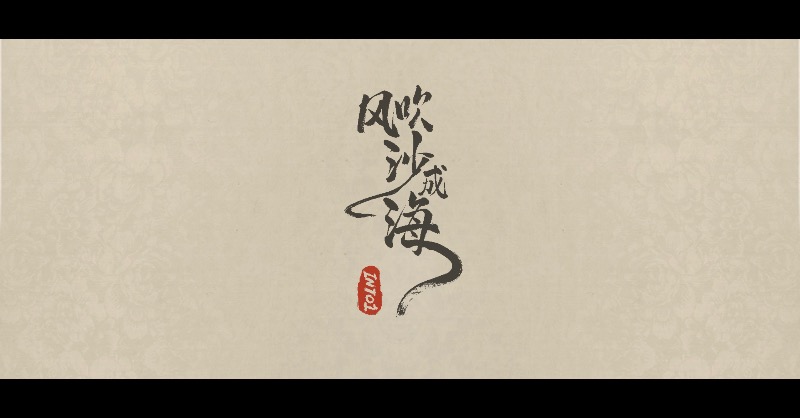 风吹
沙成
海
INTO1